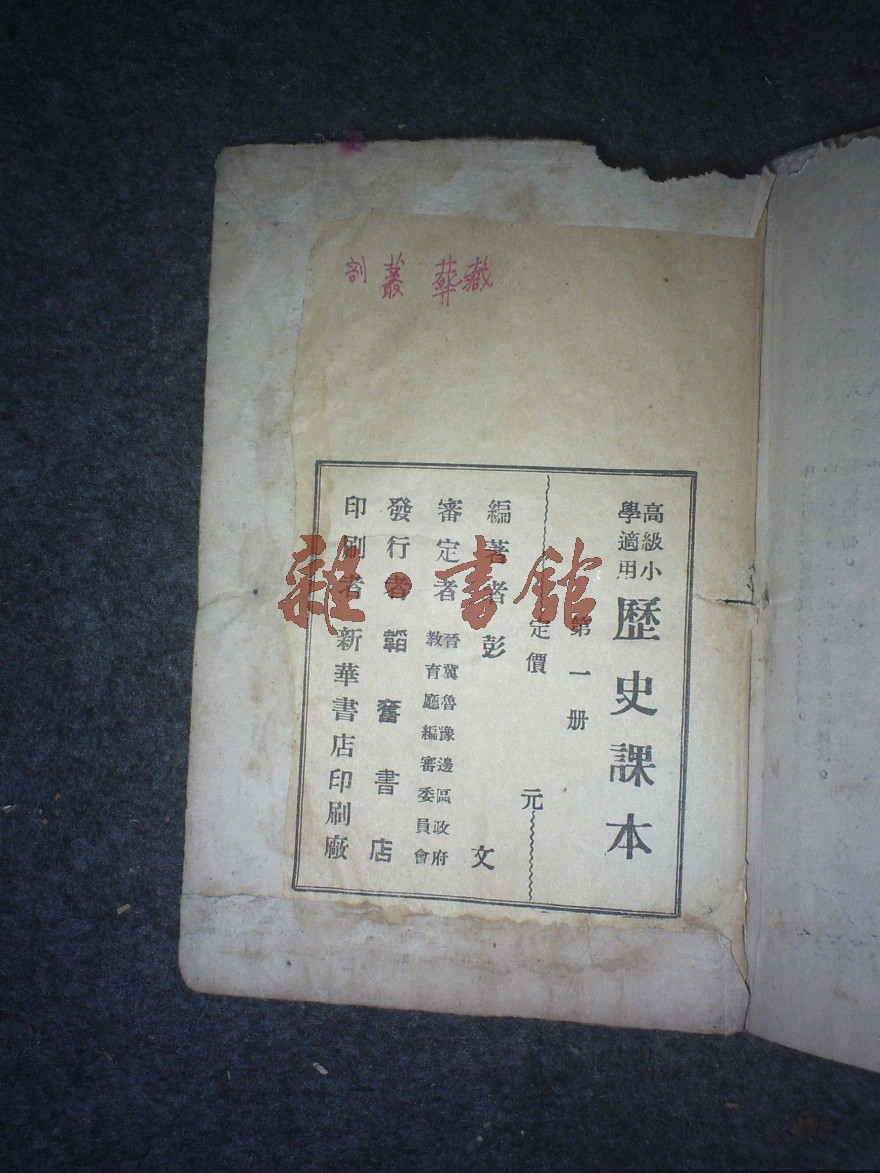 藏
叢
高級小
學適用
歷史課本
第一册
定價 元
編著者 彭文
審定者 晉冀魯豫邊區政府
教育廳編審委員會
發行者 韜奮書店
印刷者 新華書店印刷廠
雜·書館